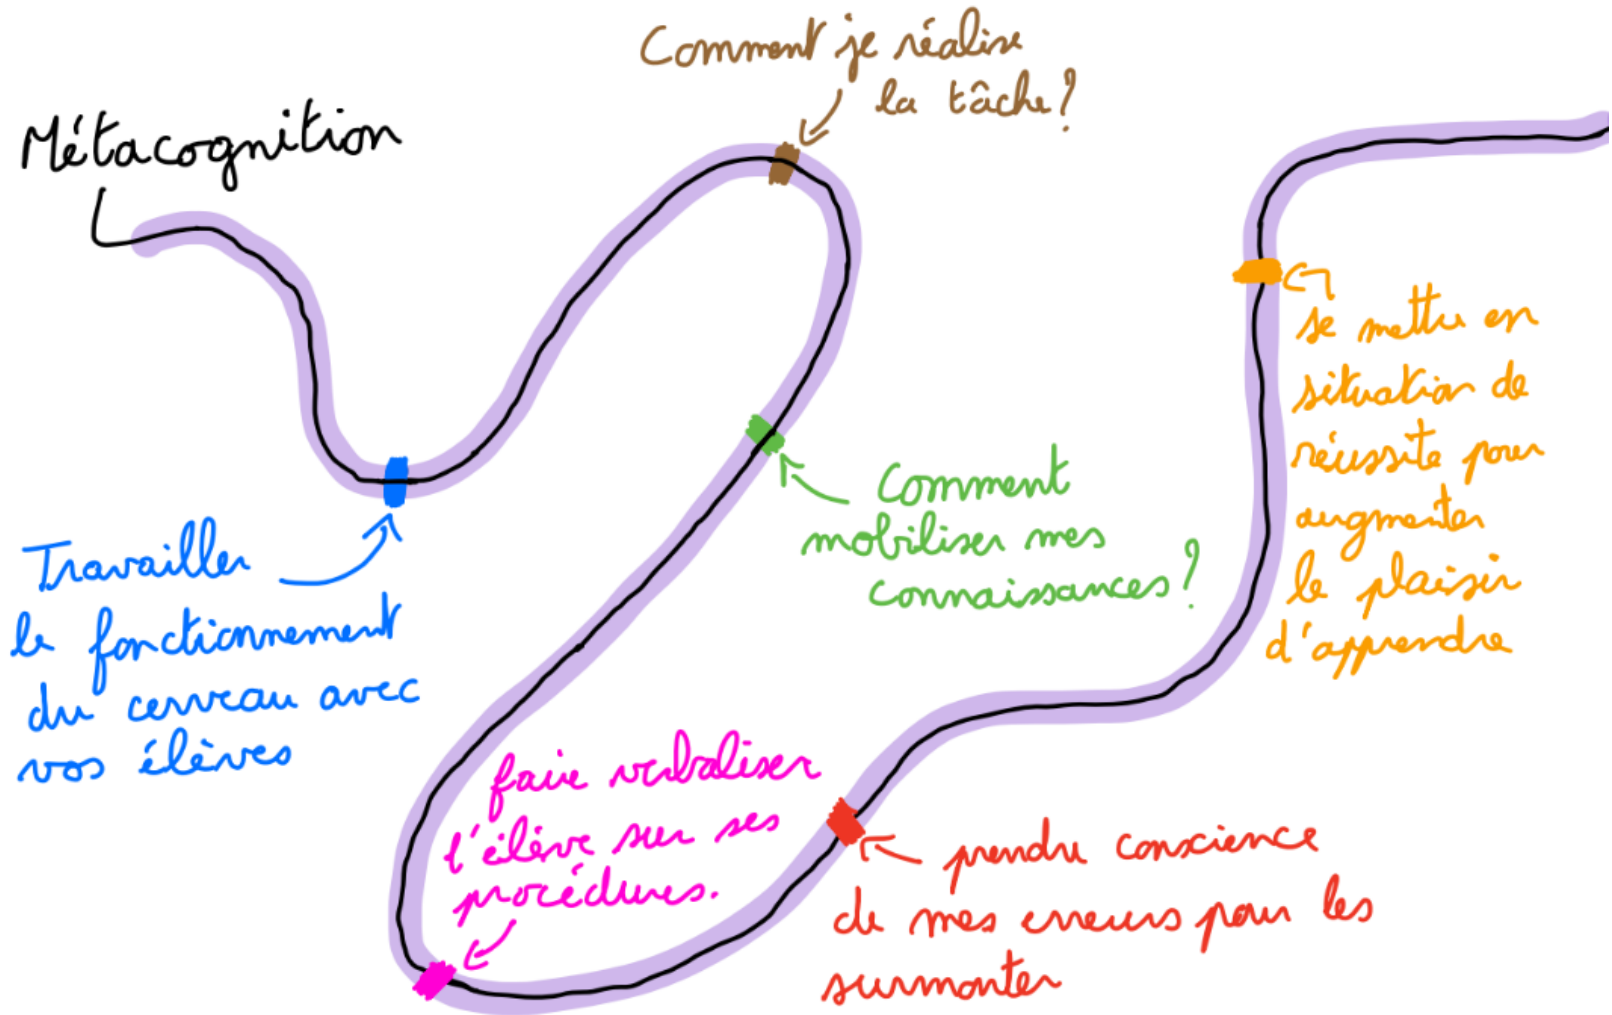 Métacognition
Comment je réalise
la tâche?
Travailler
le fonctionnement
du cerveau avec
vos élèves
Comment
mobiliser mes
connaissances?
faire verbaliser
l'élève sur ses
procédures.
prendre conscience
de mes erreurs pour les
surmonter
se mettre en
situation de
réussite pour
augmenter
le plaisir
d'apprendre